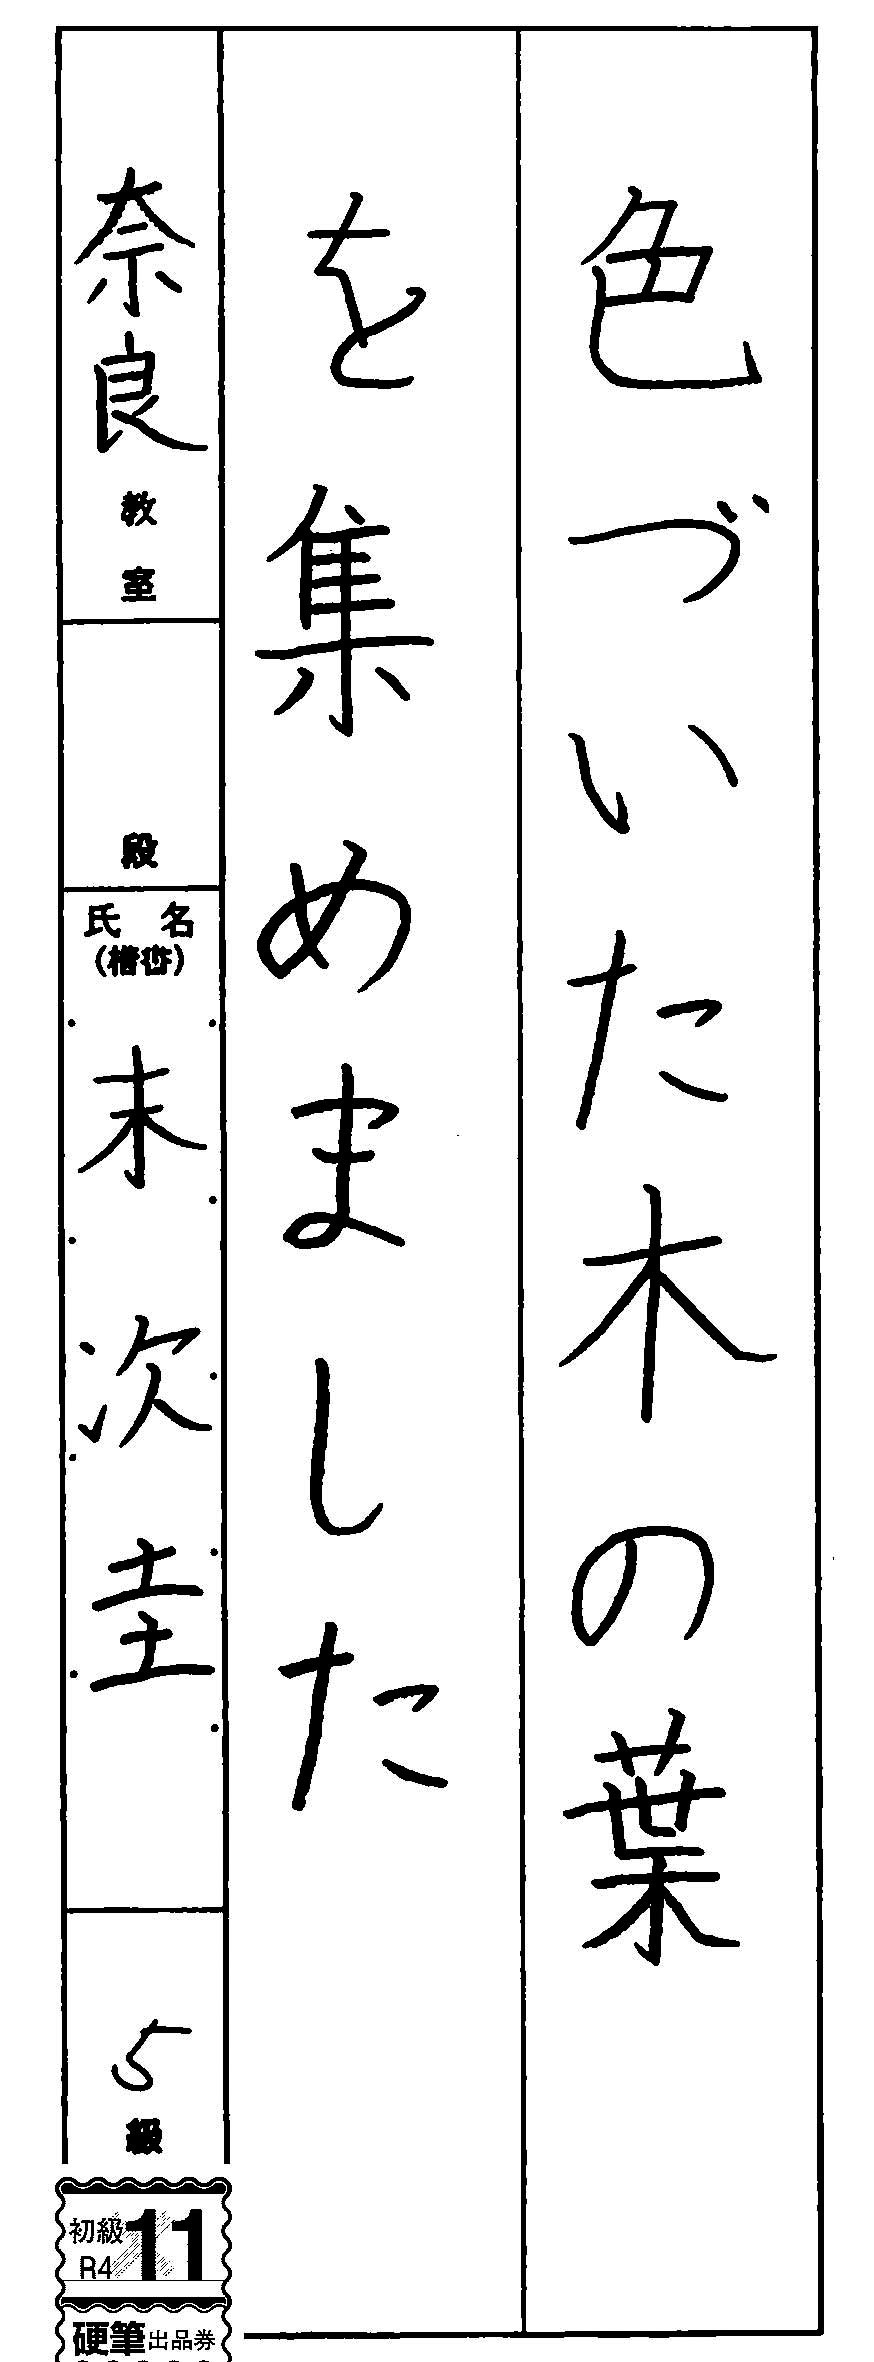 色づいた木の葉
を集めました
奈良教室
段
氏名
(楷書)
末次圭
5級
初級
R4
11
硬筆出品券